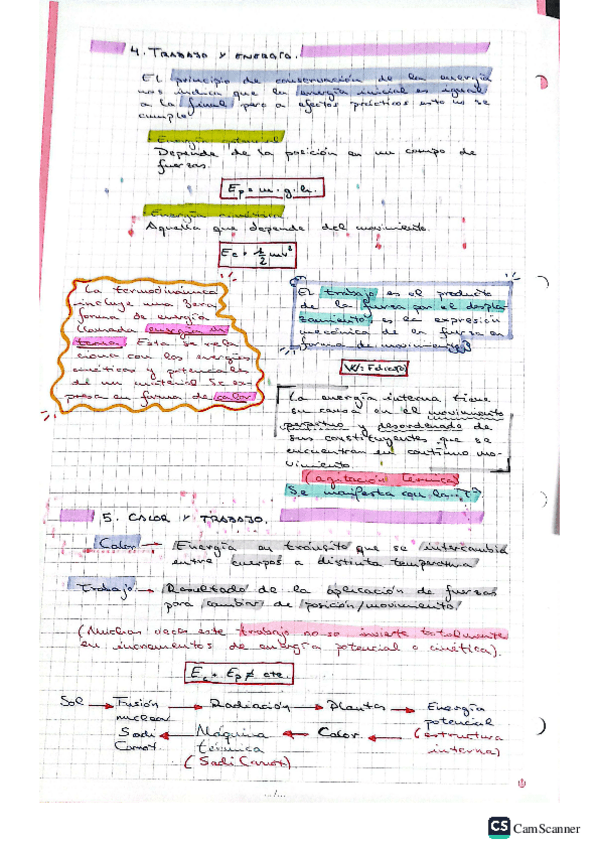 4. TRABAJO Y ENERGÍA.
El principio de conservación de la energía
nos indica que la energía inicial es igual
a la final pero a efectos prácticos esto no se
cumple.
Energía potencial
Depende de la posición en un campo de
fuerzas.
Ep = m.g.h.
Energía cinética
Aquella que depende del movimiento.
Ec = 1/2 mv²
La termodinámica
incluye una 3era
forma de energía
llamada energía in-
terna. Esta se rela
ciona con las energías
cinéticas y potenciales
de un material. Se ex-
presa en forma de calor.
El trabajo es el producto
de la fuerza por el despla-
zamiento es la expresión
mecánica de la fuerza en
forma de movimiento.
W = F·
La energía interna tiene
su causa en el movimiento
perpetuo y desordenado de
sus constituyentes que se
encuentran en continuo mo-
vimiento.
(agitación térmica)
Se manifiesta con la
5. CALOR Y TRABAJO.
Calor → Energía en tránsito que se intercambia
entre cuerpos a distinta temperatura
Trabajo → Resultado de la aplicación de fuerzas
para cambiar de posición/movimiento.
(Muchas veces este trabajo no se invierte totalmente
en incrementos de energía potencial o cinética).
Ec + Ep ≠ cte.
Sol → Fusión → Radiación → Plantas → Energía
nuclear potencial
Sadi ← Máquina ← Calor ← (estructura
Carnot térmica interna)
(Sadi Carnot)
CS CamScanner